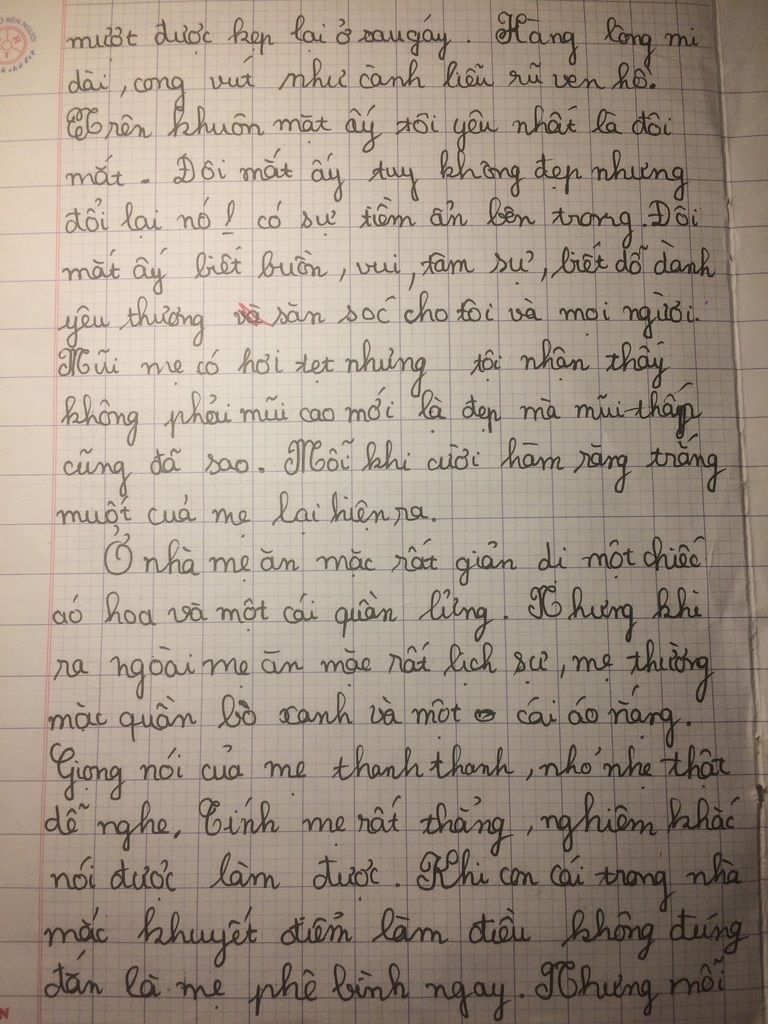 mượt được kẹp lại ở sau gáy. Hàng lông mi
dài, cong vút như cành liễu rũ ven hồ.
Trên khuôn mặt ấy tôi yêu nhất là đôi
mắt. Đôi mắt ấy tuy không đẹp nhưng
đổi lại nó ! có sự tiềm ẩn bên trong. Đôi
mắt ấy biết buồn, vui, tâm sự, biết dỗ dành
yêu thương và săn sóc cho tôi và mọi người.
Mũi mẹ có hơi tẹt nhưng tội nhận thấy
không phải mũi cao mới là đẹp mà mũi thấp
cũng đã sao. Mỗi khi cười hàm răng trắng
muốt cuả mẹ lại hiện ra.
Ở nhà mẹ ăn mặc rất giản dị một chiếc
aó hoa và một cái quần lửng. Nhưng khi
ra ngoài mẹ ăn mặc rất lịch sự, mẹ thường
mặc quần bò xanh và một cái áo nắng.
Giọng nói của mẹ thanh thanh, nhỏ nhẹ thật
dễ nghe. Tính mẹ rất thẳng, nghiêm khắc
nói được làm được. Khi con cái trong nhà
mắc khuyết điểm làm điều không đúng
đắn là mẹ phê bình ngay. Nhưng mỗi